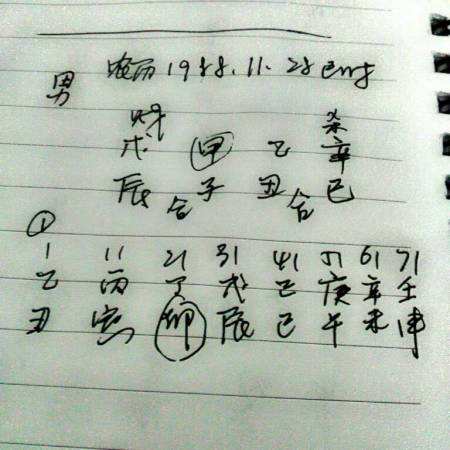 农历1988.11.28巳时
男
财 杀
戊 甲 乙 辛
辰 合 子 丑 合 巳
①
1 11 21 31 41 51 61 71
乙 丙 丁 戊 己 庚 辛 壬
丑 寅 卯 辰 巳 午 未 申